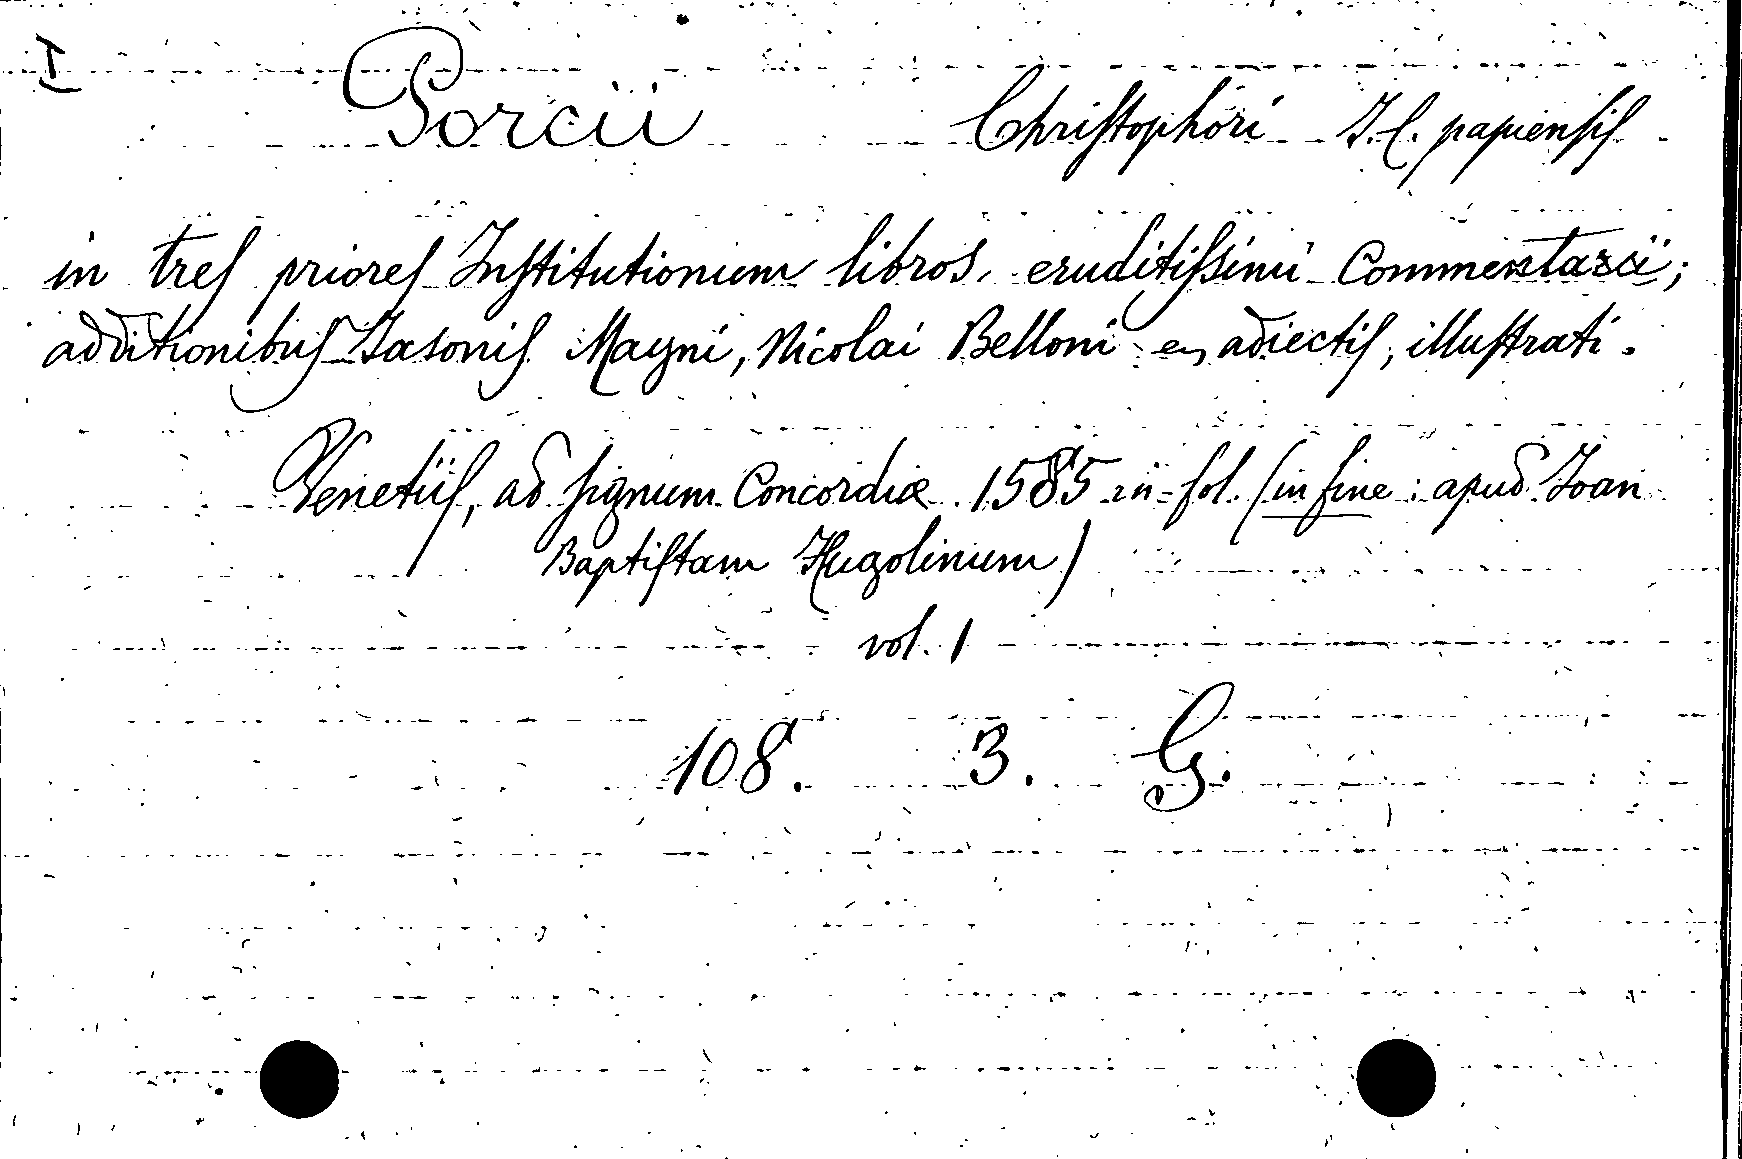 I
Porcii Christophori J. C. papiensis
in tres priores Institutionum libros, eruditissimi Commentarii;
additionibus Jasonis Mayni, Nicolai Belloni adiectis, illustrati.
Venetiis, ad signum Concordiæ 1585 in-fol. (in fine: apud Joan
Baptistam Hugolinum)
vol. 1
108. 3. G.